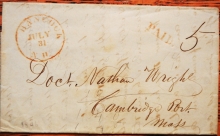 HANCOCK
JULY
31
N.H.
PAID
5
Doct. Nathan Wright
Cambridge Port.
Mass